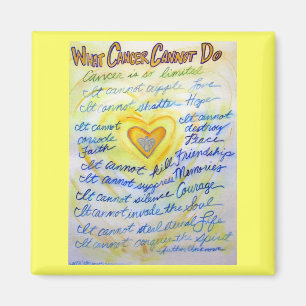 What Cancer Cannot Do
Cancer is so limited
It cannot cripple Love
It cannot shatter Hope
It cannot corrode Faith
It cannot destroy Peace
It cannot kill Friendships
It cannot suppress Memories
It cannot silence Courage
It cannot invade the Soul
It cannot steal eternal Life
It cannot conquer the Spirit
Author Unknown